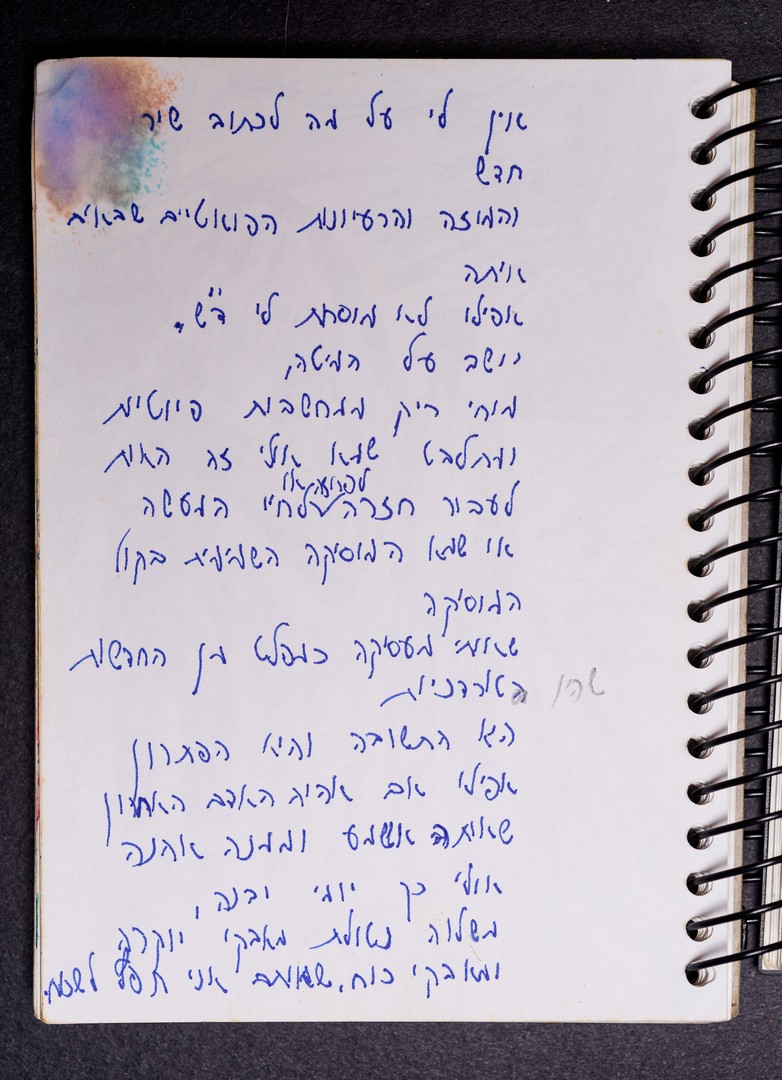 אין לי על מה לכתוב שיר
חדש
והמוזה והרעיונות הפואטיים שבאים
איתה
אפילו לא מוסרת לי ד"ש.
יושב על המיטה,
מוחי ריק ממחשבות פיוטיות
ומתלבט שמא אולי זה האות
לפרוזה או
לעבור חזרה לחיי המעשה
או שמא המוסיקה השמימית בקול
המוסיקה
שאותי מעסיקה כמפלט מן החדשות
שהן טורדניות
היא התשובה והיא הפתרון
אפילו אם אהיה האדם האחרון
שאותה אשמע וממנה אהנה
אולי כך יומי יבנה,
משלוה נטולת מאבקי יוקרה
ומאבקי כוח, שאותם אני לשכוח.